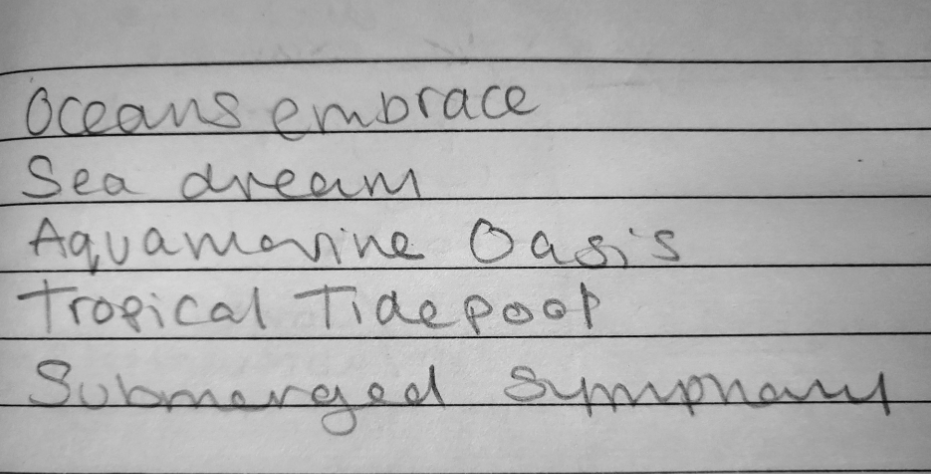 Oceans embrace
Sea dream
Aquamarine Oasis
Tropical Tidepoop
Submerged Symphany